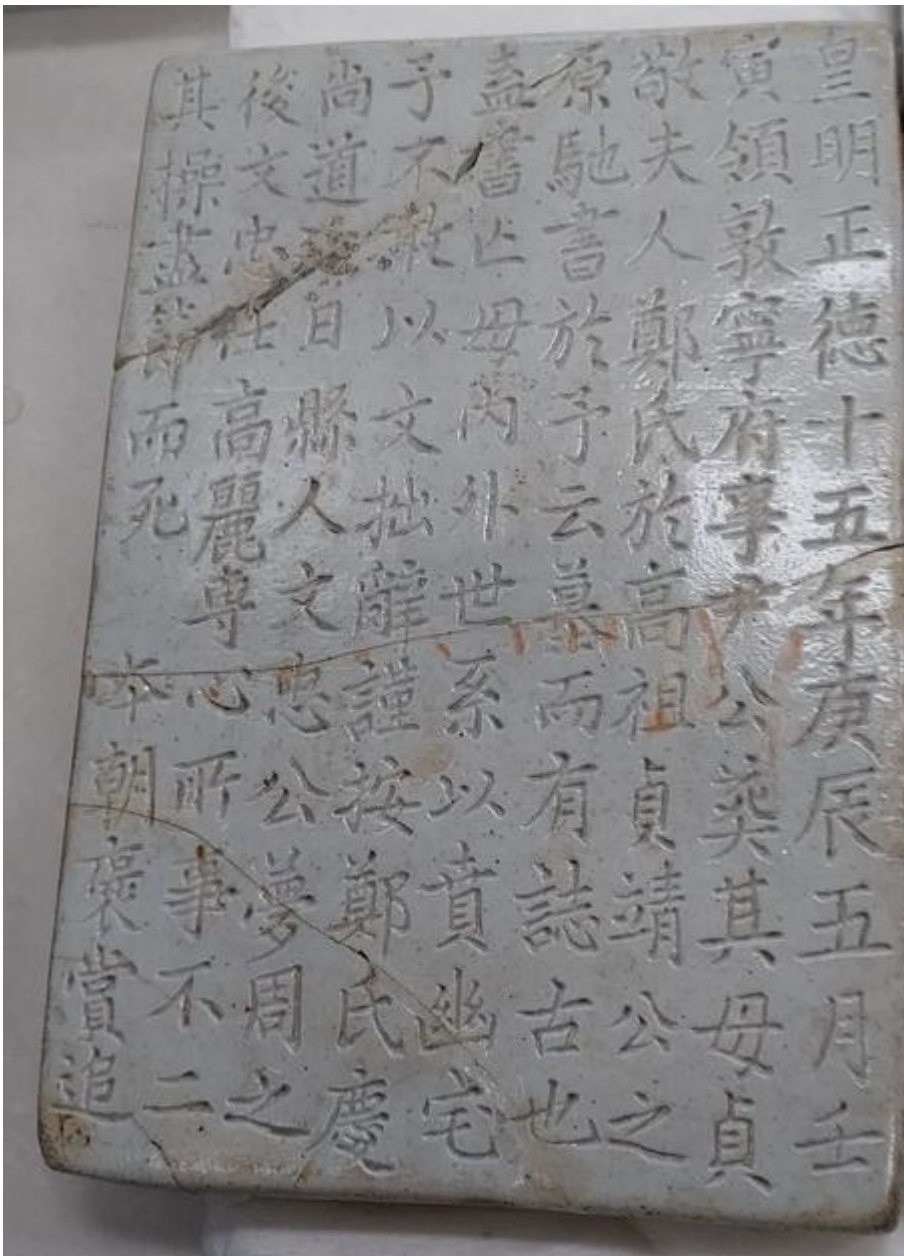 皇明正徳十五年庚辰五月壬
寅領敦寧府事尹公葬其母貞
敬夫人鄭氏於高祖貞靖公之
原馳書於予云墓而有誌古也
盍書亡母內外世系以賁幽宅
予不敢以文拙辭謹按鄭氏慶
尚道迎日縣人文忠公夢周之
後文忠仕高麗専心所事不二
其操盡節而死 本朝褒賞追